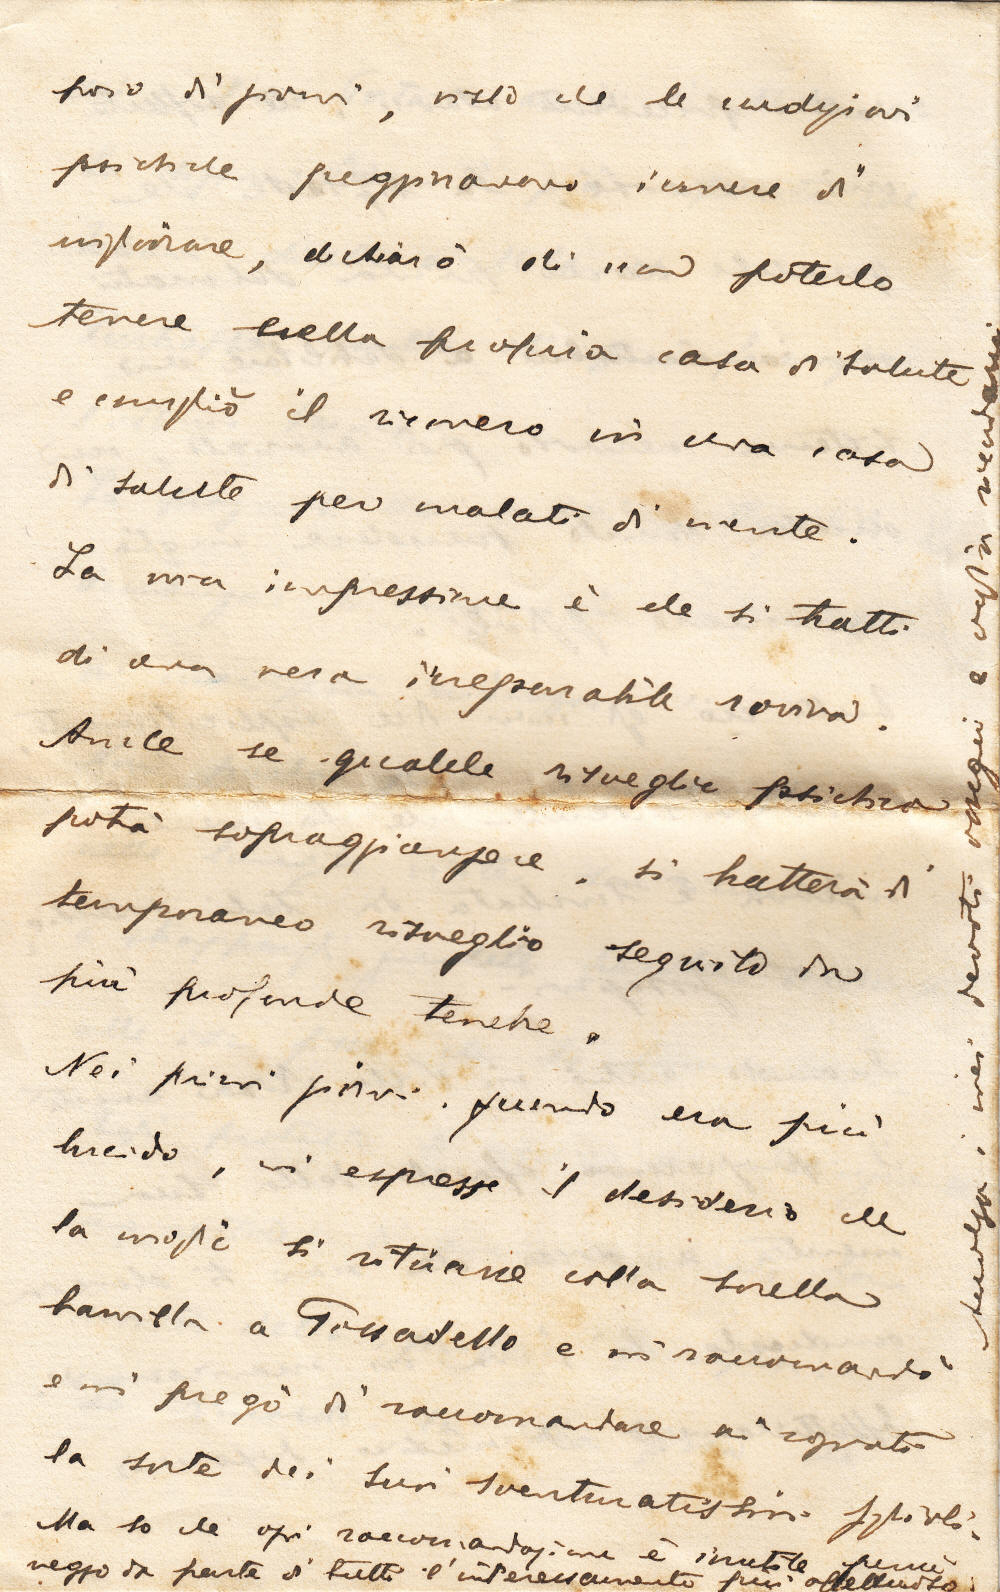 paio di giorni, visto che le condizioni
psichiche peggioravano invece di
migliorare, dichiarò di non poterlo
tenere nella propria casa di salute
e consigliò il ricovero in una casa
di salute per malati di mente.
La mia impressione è che si tratti
di una vera irreparabile rovina.
Anche se qualche risveglio psichico
potrà sopraggiungere, si tratterà di
temporaneo risveglio seguito da
più profonde tenebre.
Nei primi giorni, quando era più
lucido, mi espresse il desiderio che
la moglie si ritirasse colla sorella
Camilla a Tossadello e mi raccomandò
e mi pregò di raccomandare ai cognati
la sorte dei suoi sventuratissimi figlioli.
Ma so che ogni raccomandazione è inutile perché
veggo da parte di tutti l'interessamento più affettuoso.
Accolga i miei devoti ossequi e voglia